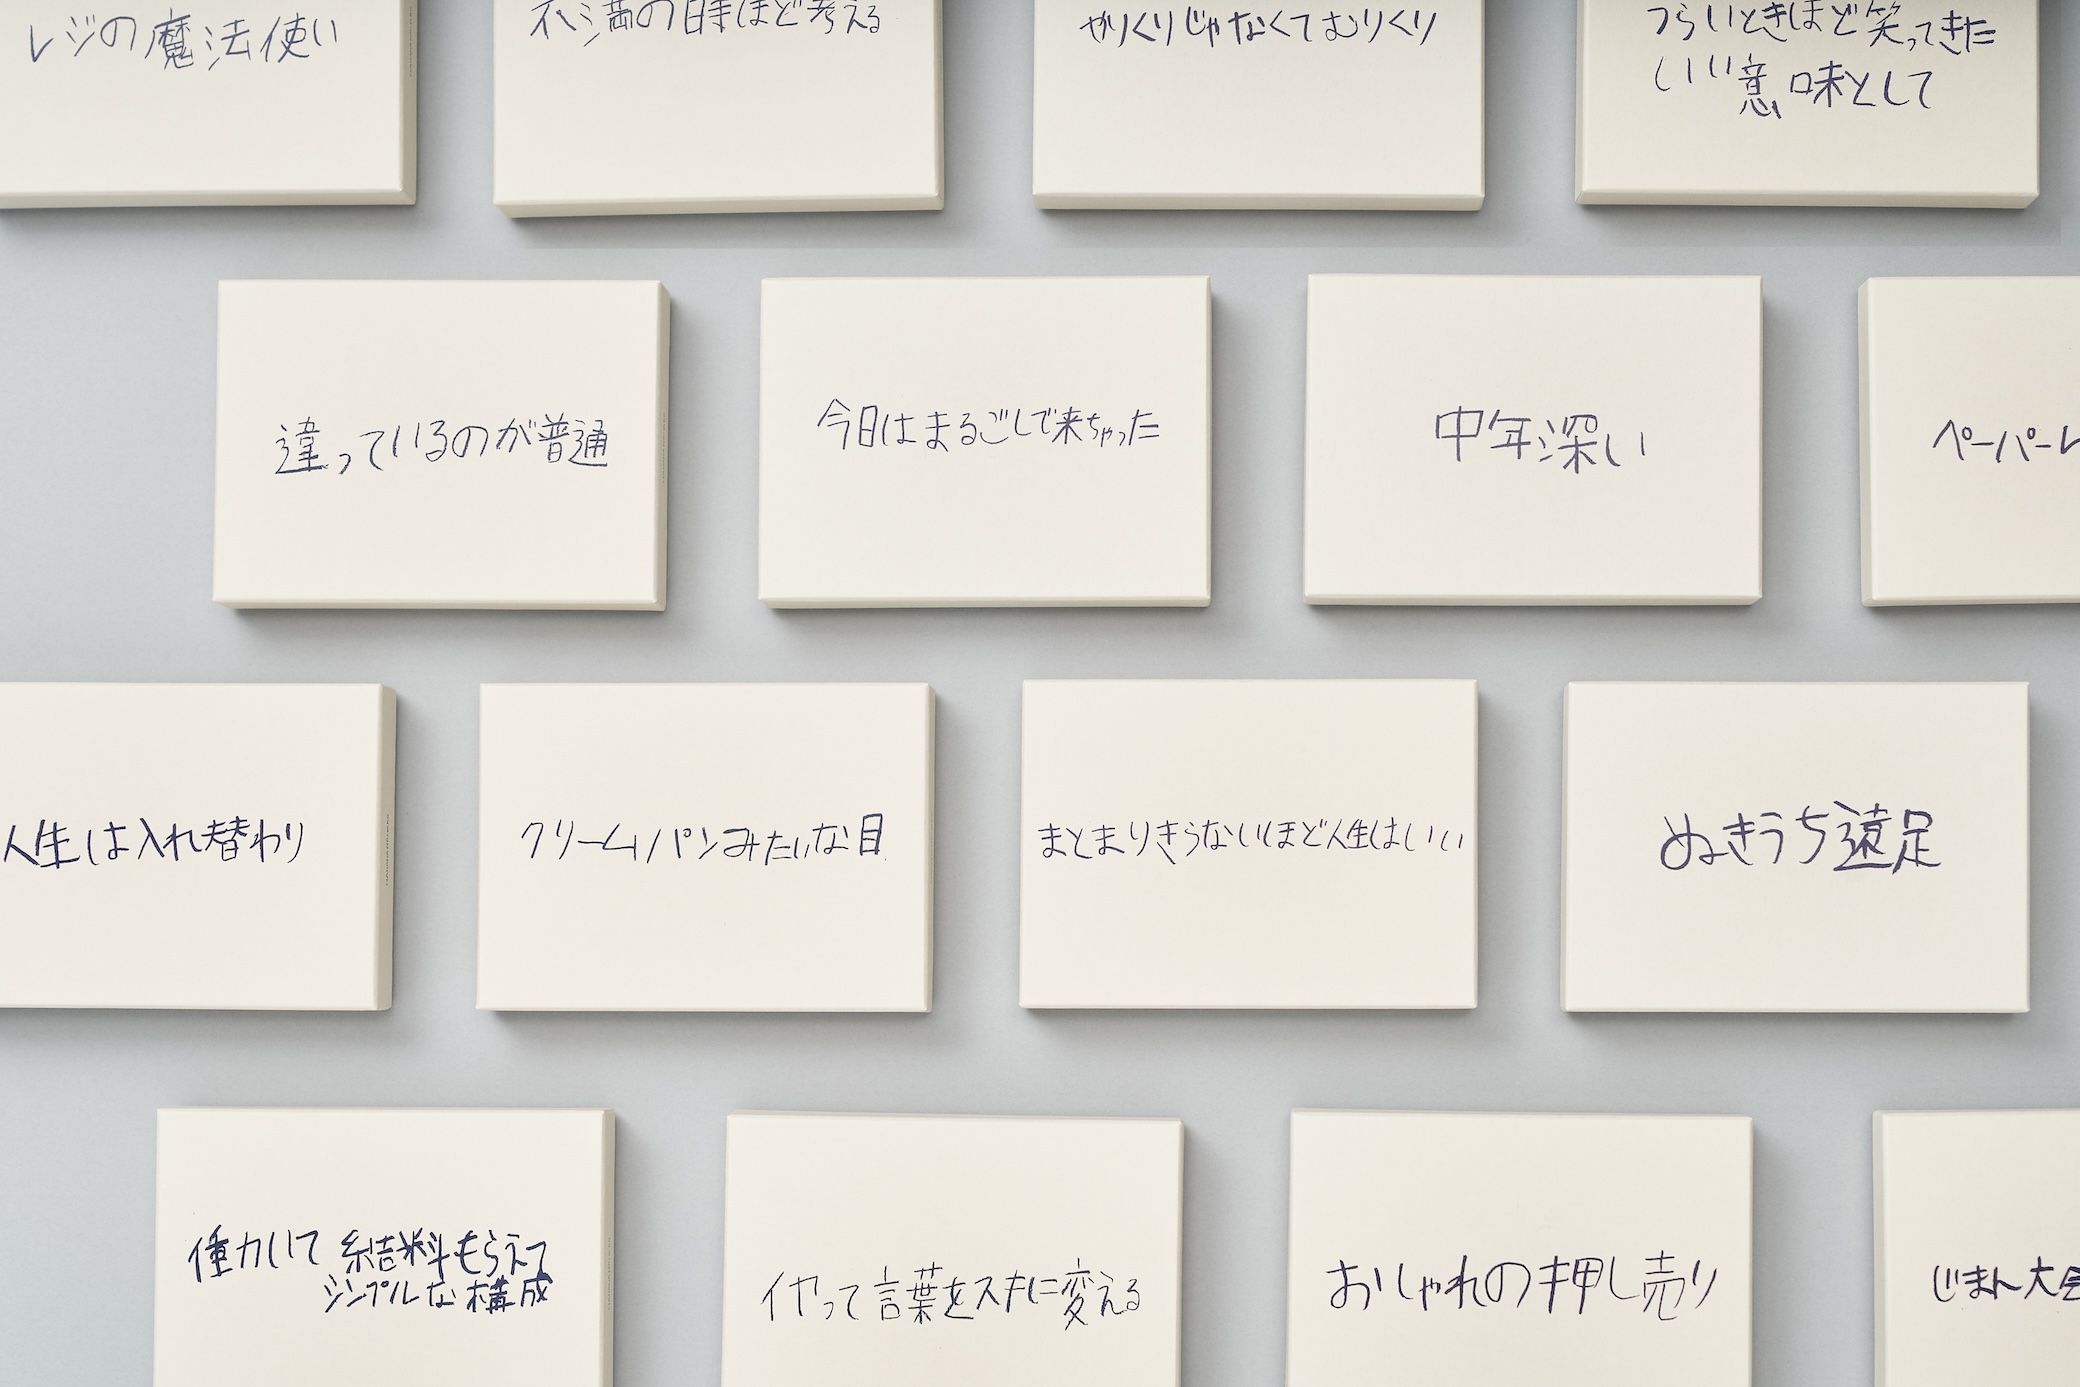 レジの魔法使い
不満の時ほど考える
やりくりじゃなくてむりくり
つらいときほど笑ってきた
いい意味として
違っているのが普通
今日はまるごしで来ちゃった
中年深い
ペーパーレ
人生は入れ替わり
クリームパンみたいな目
まとまりきらないほど人生はいい
ぬきうち遠足
働いて 給料もらえて
シンプルな構成
イヤって言葉をスキに変える
おしゃれの押し売り
じまん大会